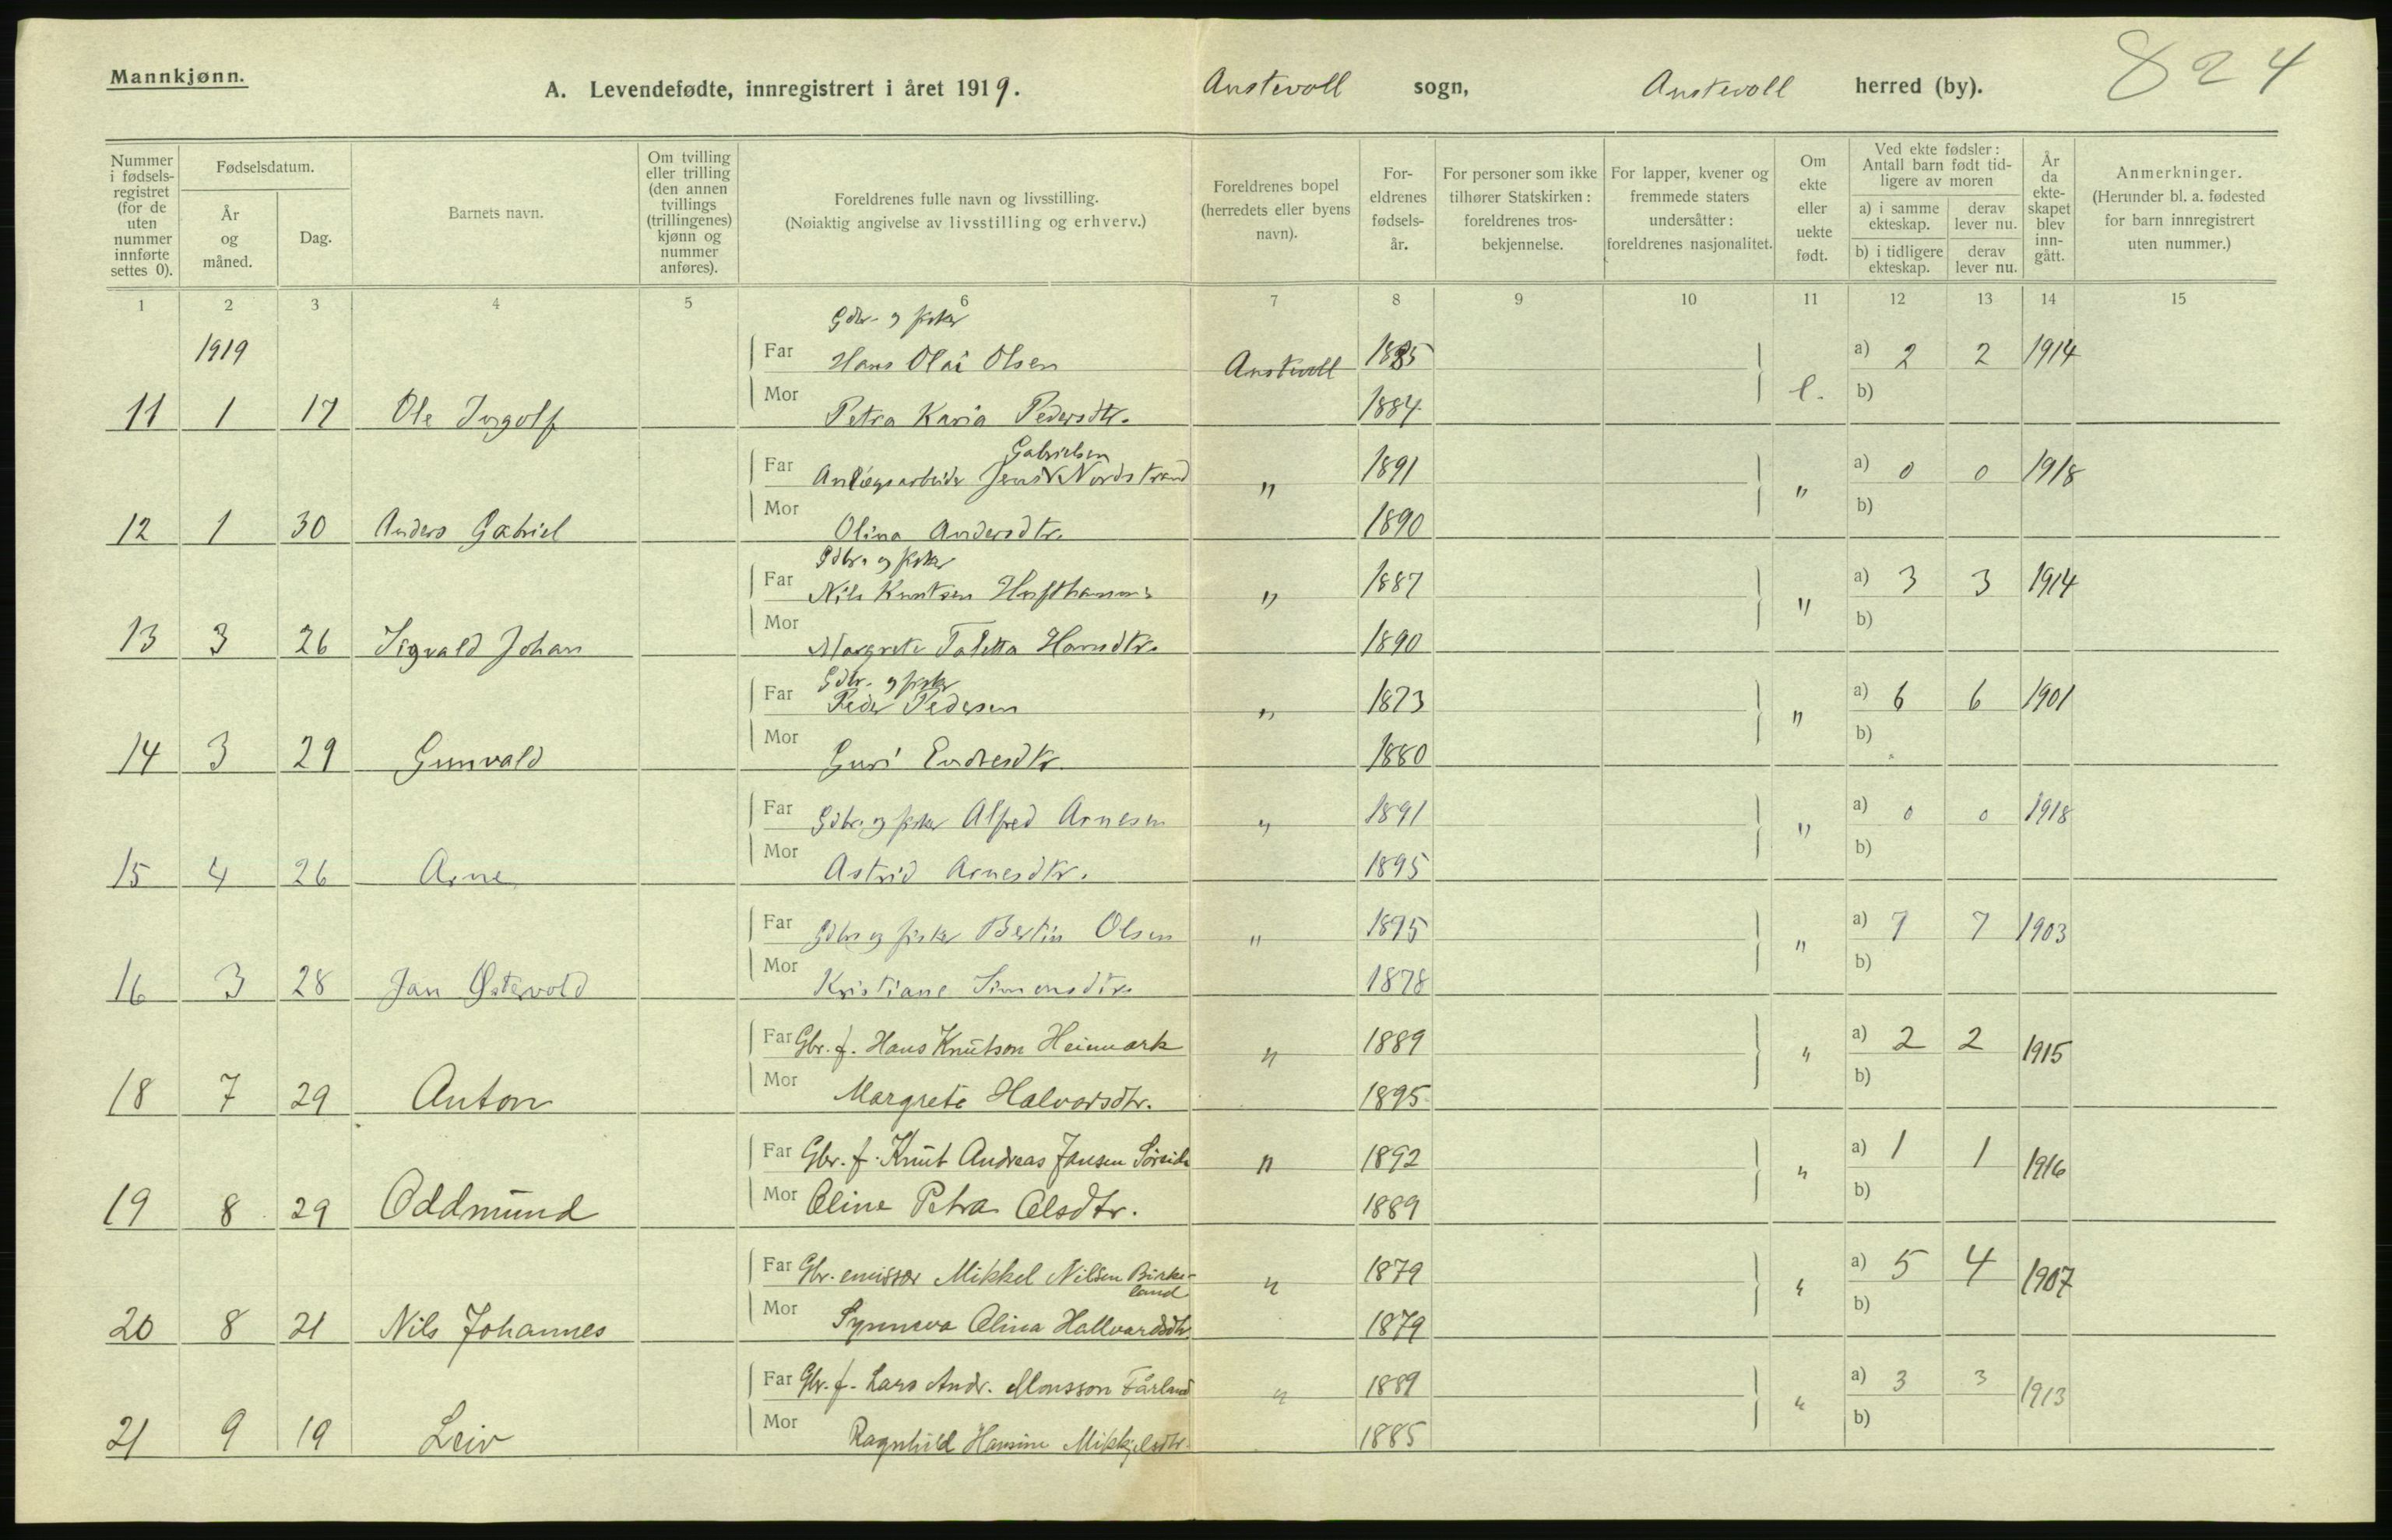 Mannkjønn.
A. Levendefødte, innregistrert i året 1919.
Austevoll sogn, Austevoll herred (by).
824
Nummer i fødselsregistret (for de uten nummer innførte settes 0).
Fødselsdatum.
År og måned.
Dag.
Barnets navn.
Om tvilling eller trilling (den annen tvillings (trillingenes) kjønn og nummer anføres).
Foreldrenes fulle navn og livsstilling.
(Nøiaktig angivelse av livsstilling og erhverv.)
Foreldrenes bopel (herredets eller byens navn).
Foreldrenes fødselsår.
For personer som ikke tilhører Statskirken: foreldrenes trosbekjennelse.
For lapper, kvener og fremmede staters undersåtter: foreldrenes nasjonalitet.
Om ekte eller uekte født.
Ved ekte fødsler: Antall barn født tidligere av moren
a) i samme ekteskap. derav lever nu.
b) i tidligere ekteskap. derav lever nu.
År da ekteskapet blev inngått.
Anmerkninger.
(Herunder bl. a. fødested for barn innregistrert uten nummer.)
1 2 3 4 5 6 7 8 9 10 11 12 13 14 15
Gdbr. og fisker
1919 Far Hans Olai Olsen Austevoll 1885 a) 2 2 1914
11 1 17 Ole Ingolf Mor Petra Karia Pedersdtr. 1884 e. b)
Gabrielsen
Far Anlægsarbeider Jens N Nordstrand " 1891 a) 0 0 1918
12 1 30 Anders Gabriel Mor Olina Andersdtr. 1890 " b)
Gdbr. og fisker
Far Nils Knutsen Hufthammer " 1887 a) 3 3 1914
13 3 26 Sigvald Johan Mor Margrete Taletta Hansdtr. 1890 " b)
Gdbr. og fisker
Far Peder Pedersen " 1873 a) 6 6 1901
14 3 29 Gunvald Mor Guri Endresdtr. 1880 " b)
Far Gdbr. og fisker Alfred Arnesen " 1891 a) 0 0 1918
15 4 26 Arne Mor Astrid Arnesdtr. 1895 " b)
Far Gdbr og fisker Bertin Olsen " 1875 a) 7 7 1903
16 3 28 Jan Østervold Mor Kristiane Simonsdtr. 1878 " b)
Far Gbr. f. Hans Knutson Heimark " 1889 a) 2 2 1915
18 7 29 Anton Mor Margrete Halvorsdtr. 1895 " b)
Far Gbr. f. Knut Andreas Jansen Sørside " 1892 a) 1 1 1916
19 8 29 Oddmund Mor Oline Petra Olsdtr. 1889 " b)
Far Gbr. emissær Mikkel Nilsen Birkeland " 1879 a) 5 4 1907
20 8 21 Nils Johannes Mor Synneva Olina Hallvardsdtr. 1879 " b)
Far Gbr. f. Lars Andr. Monsson Fårland " 1889 a) 3 3 1913
21 9 19 Leiv Mor Ragnhild Hansine Mikkjelsdtr. 1885 " b)